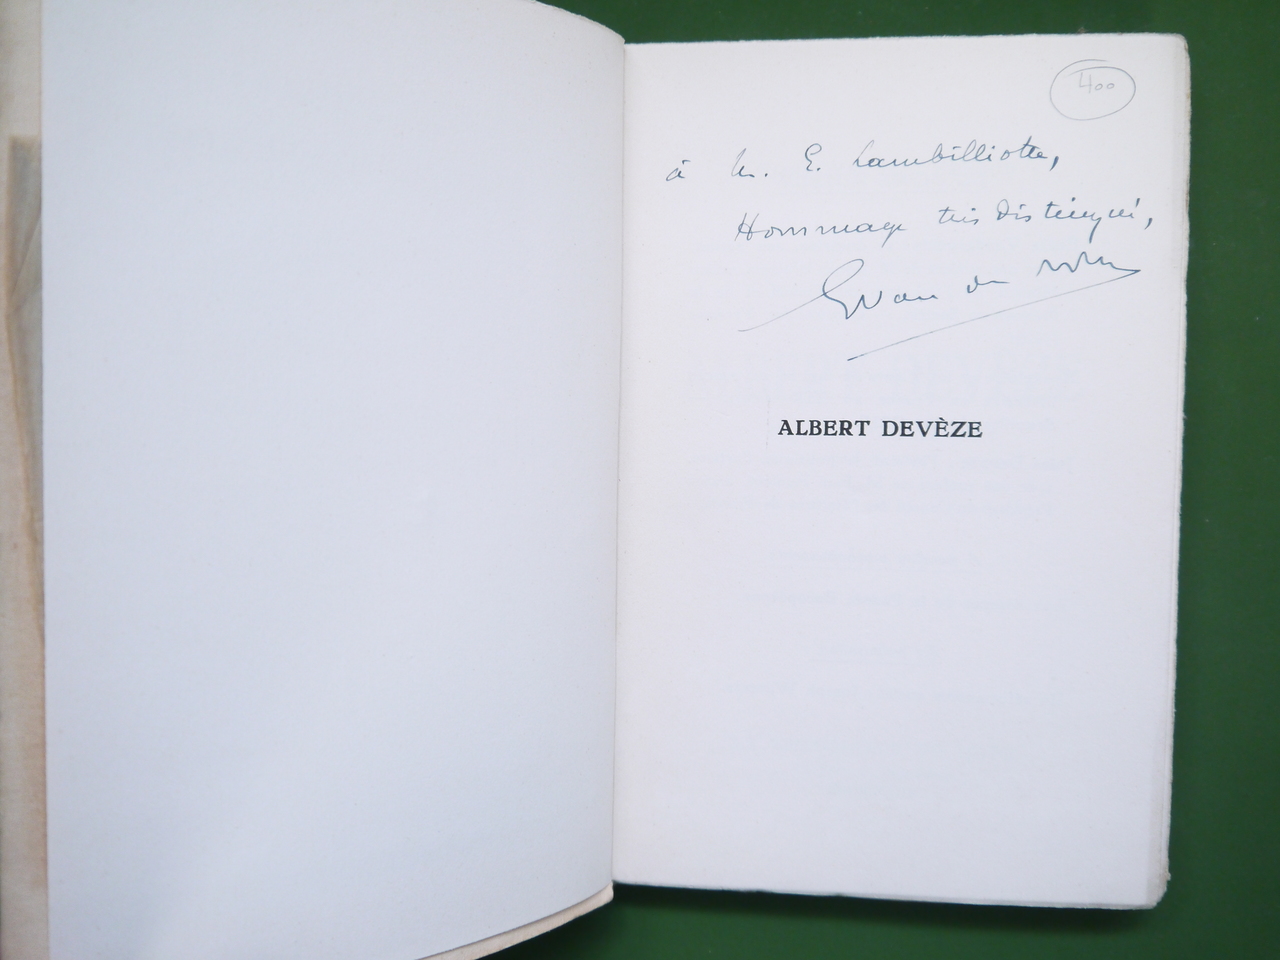 400
à M. E. Lambilliotte,
Hommage très distingué,
van der
ALBERT DEVÈZE